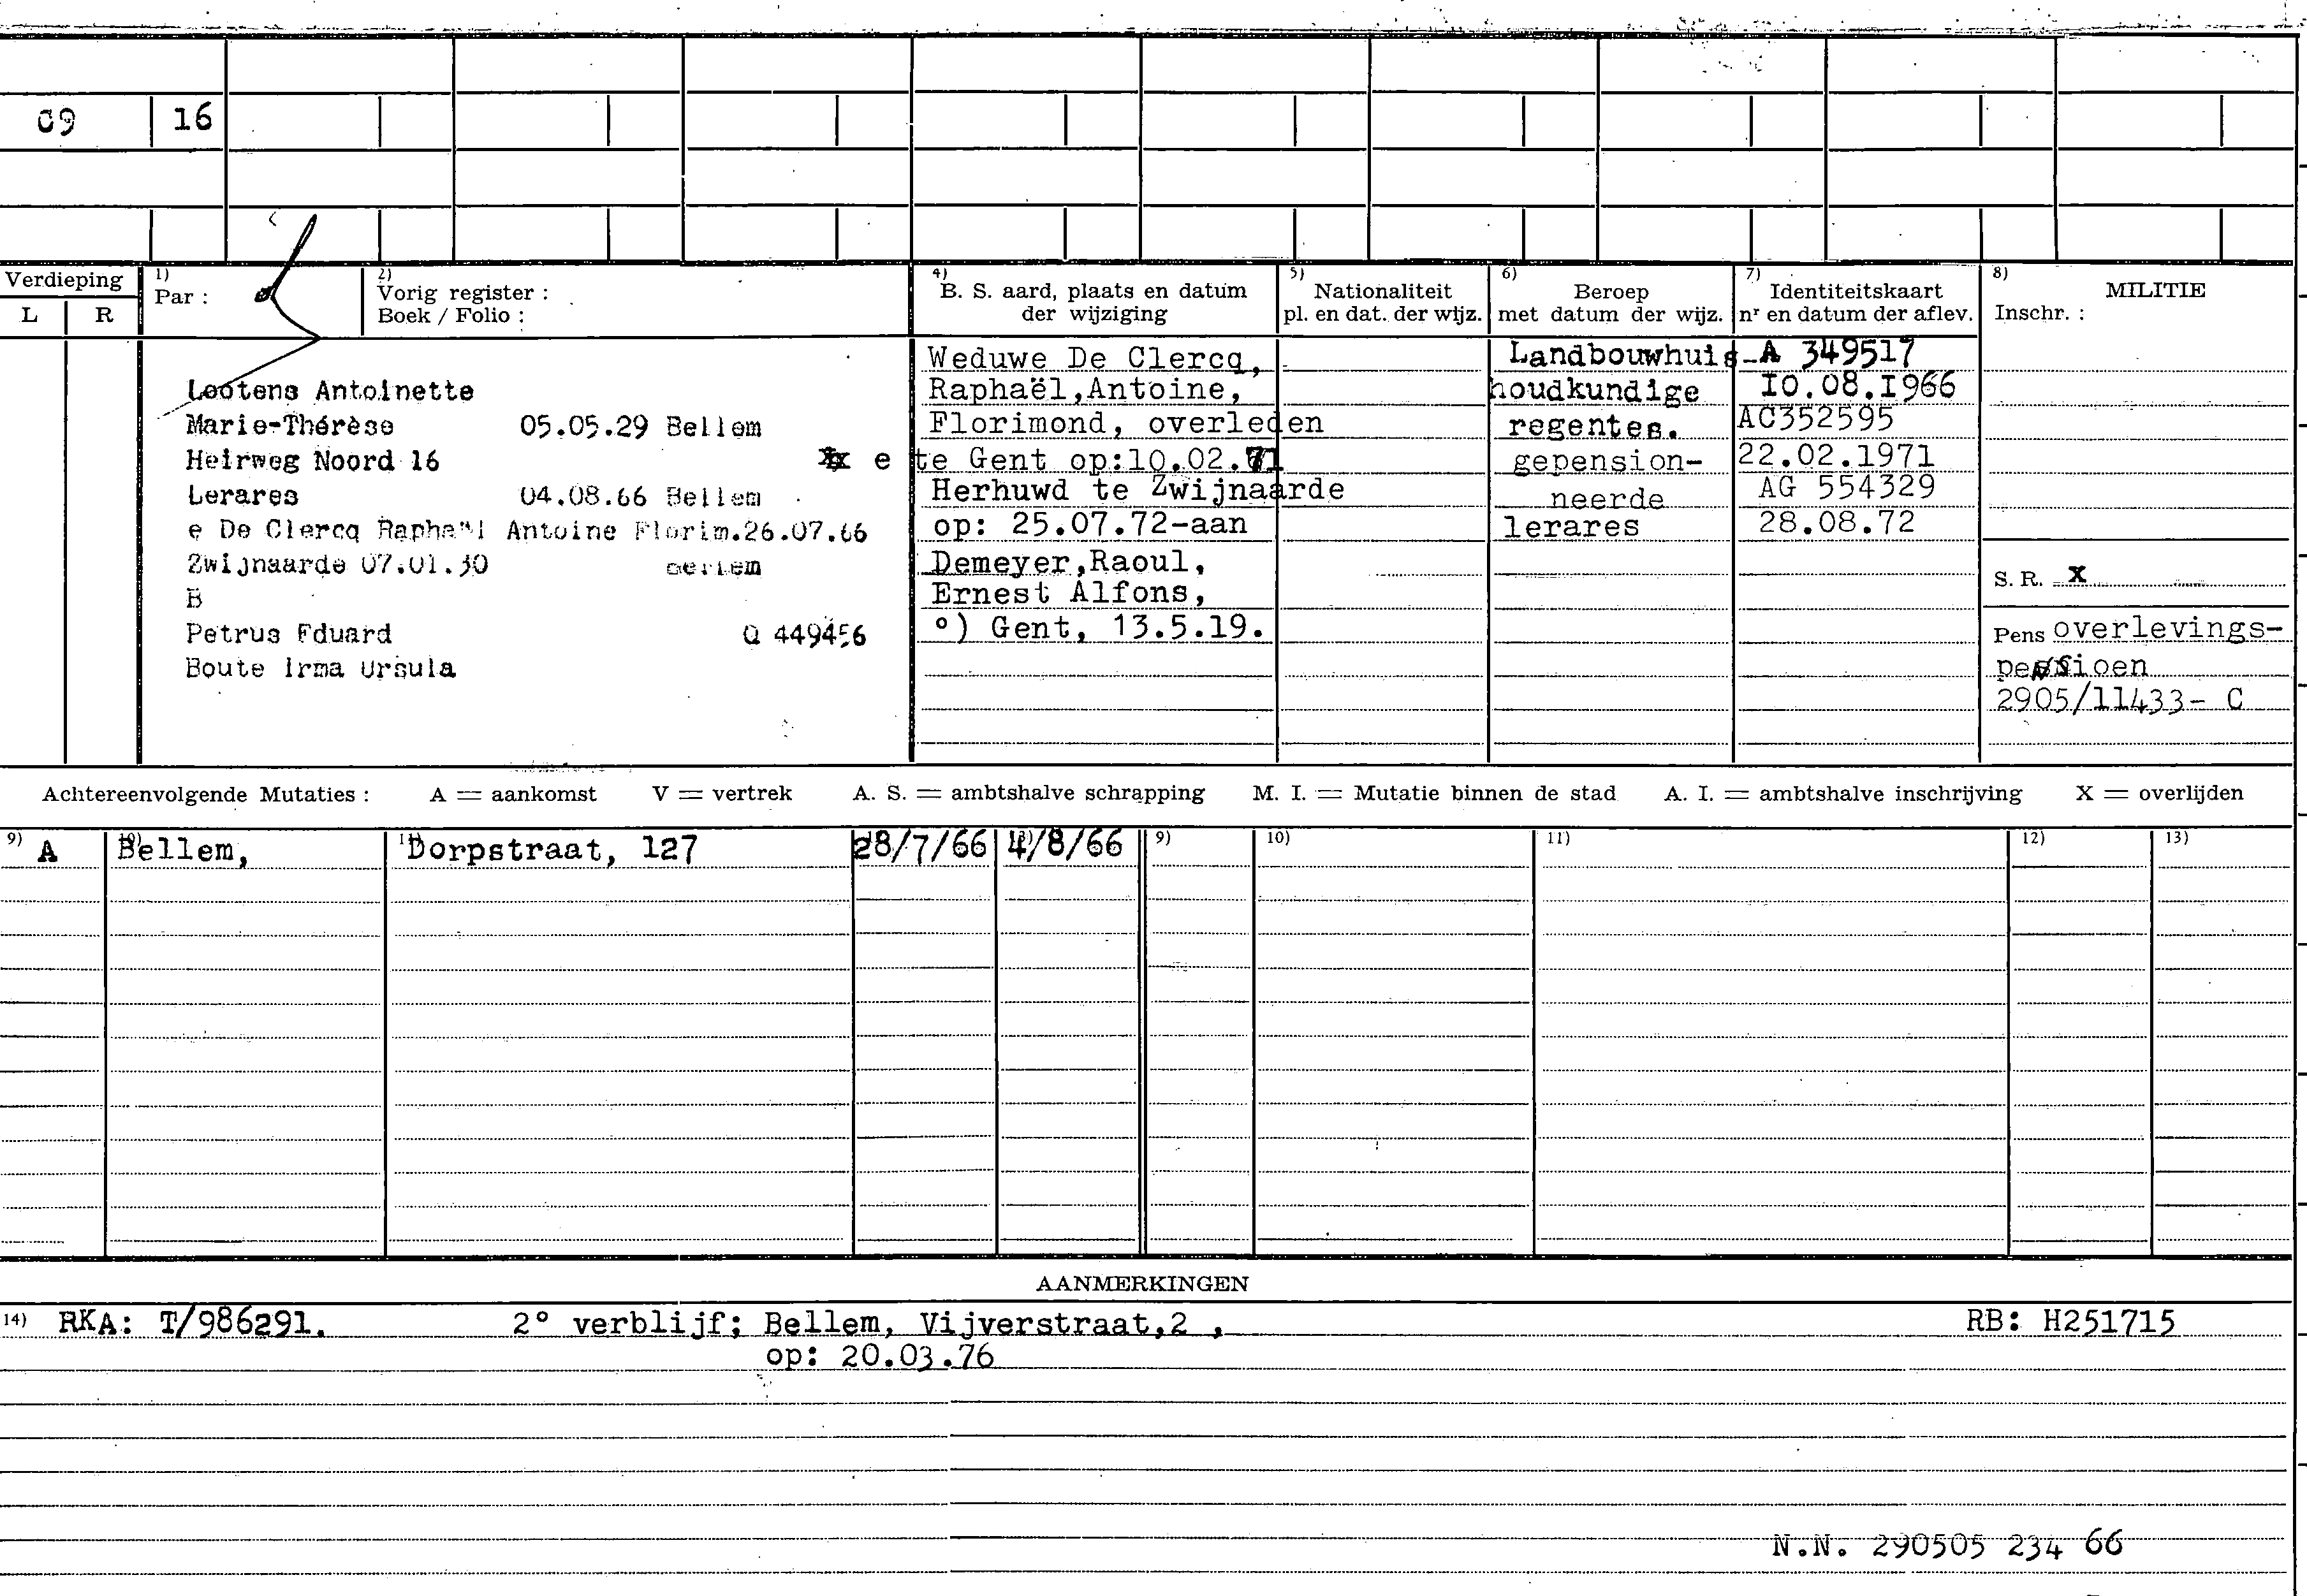 09 16
Verdieping
L R
1) Par :
2) Vorig register :
Boek / Folio :
4) B. S. aard, plaats en datum
der wijziging
5) Nationaliteit
pl. en dat. der wijz.
6) Beroep
met datum der wijz.
7) Identiteitskaart
nr en datum der aflev.
8) MILITIE
Inschr. :
Lootens Antoinette
Marie-Thérèse 05.05.29 Bellem
Heirweg Noord 16 e
Lerares 04.08.66 Bellem
e De Clercq Raphaël Antoine Florim.26.07.66
Zwijnaarde 07.01.30
B
Petrus Eduard Q 449456
Boute Irma Ursula
Weduwe De Clercq,
Raphaël,Antoine,
Florimond, overleden
te Gent op:10.02.71
Herhuwd te Zwijnaarde
op: 25.07.72-aan
Demeyer,Raoul,
Ernest Alfons,
°) Gent, 13.5.19.
Landbouwhuis-
houdkundige
regentes.
gepension-
neerde
lerares
A 349517
10.08.1966
AC352595
22.02.1971
AG 554329
28.08.72
S. R. x
Pens overlevings-
pensioen
2905/11433- C
Achtereenvolgende Mutaties : A = aankomst V = vertrek A. S. = ambtshalve schrapping M. I. = Mutatie binnen de stad A. I. = ambtshalve inschrijving X = overlijden
9) A 10) Bellem, 11) Dorpstraat, 127 28/7/66 4/8/66 9) 10) 11) 12) 13)
AANMERKINGEN
14) RKA: T/986291. 2° verblijf; Bellem, Vijverstraat,2 , RB: H251715
op: 20.03.76
N.N. 290505 234 66